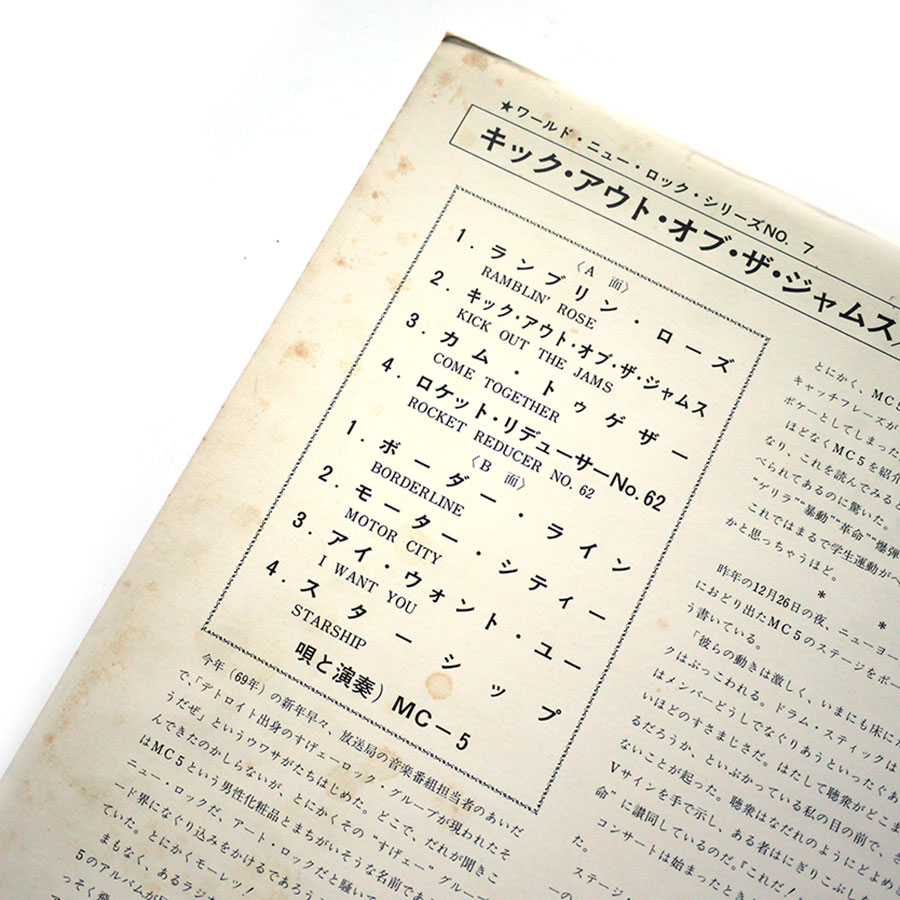 ★ワールド・ニュー・ロック・シリーズNO. 7
キック・アウト・オブ・ザ・ジャムス
〈A 面〉
1. ランブリン・ローズ
RAMBLIN' ROSE
2. キック・アウト・オブ・ザ・ジャムス
KICK OUT THE JAMS
3. カム・トゥゲザー
COME TOGETHER
4. ロケット・リデューサーNo.62
ROCKET REDUCER NO. 62
〈B 面〉
1. ボーダー・ライン
BORDERLINE
2. モーター・シティー
MOTOR CITY
3. アイ・ウォント・ユー
I WANT YOU
4. スターシップ
STARSHIP
唄と演奏) MC-5
今年(69年)の新年早々、放送局の音楽番組担当者のあいだ
で、「デトロイト出身のすげェーロック・グループが現われたそ
うだぜ」というウワサがたちはじめた。どこで、だれが聞きこ
んできたのかしらないが、とにかくその"すげェー"グループ
はMC5という男性化粧品とまちがいそうな名前であ
ニュー・ロックだ、アート・ロックだと騒いで
ード界になぐり込みをかけるであろう
ていた。とにかくモーレツ!
まもなく、あるラジ
5のアルバムが
っそく飛
とにかく、MC5
キャッチフレーズが
ボケーとしてしまった
ほどなくMC5を紹介
なり、これを読んでみると
べられてあるのに驚いた。
"ゲリラ""暴動""革命""爆弾
これではまるで学生運動がへ
かと思っちゃうほど。
* *
昨年の12月26日の夜、ニューヨー
におどり出たMC5のステージをボー
う書いている。
「彼らの動きは激しく、いまにも床に
クはぶっこわれる。ドラム・スティックは
はメンバーどうしでなぐりあうといったぐあ
いほどのすさまじさだ。はたして聴衆がどこま
るだろうか、といぶかっている私の目の前で、
ないことが起った。聴衆はなだれのようにどよめき
Vサインを手で示し、ある者はにぎりこぶし
命"に讃同しているのだ。『これだ!
コンサートは始まったとき
た。
ステージ・